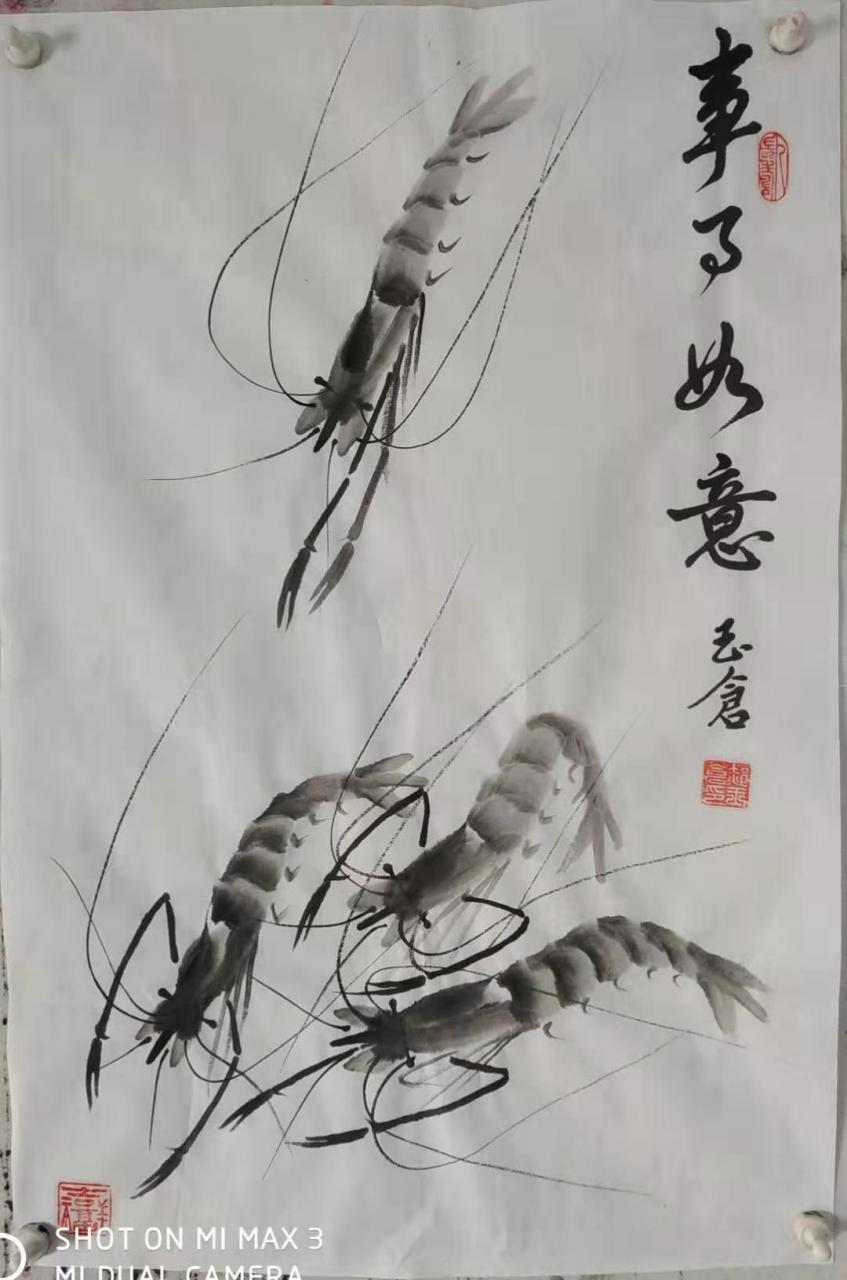 事事如意
玉倉
SHOT ON MI MAX 3
MI DUAL CAMERA